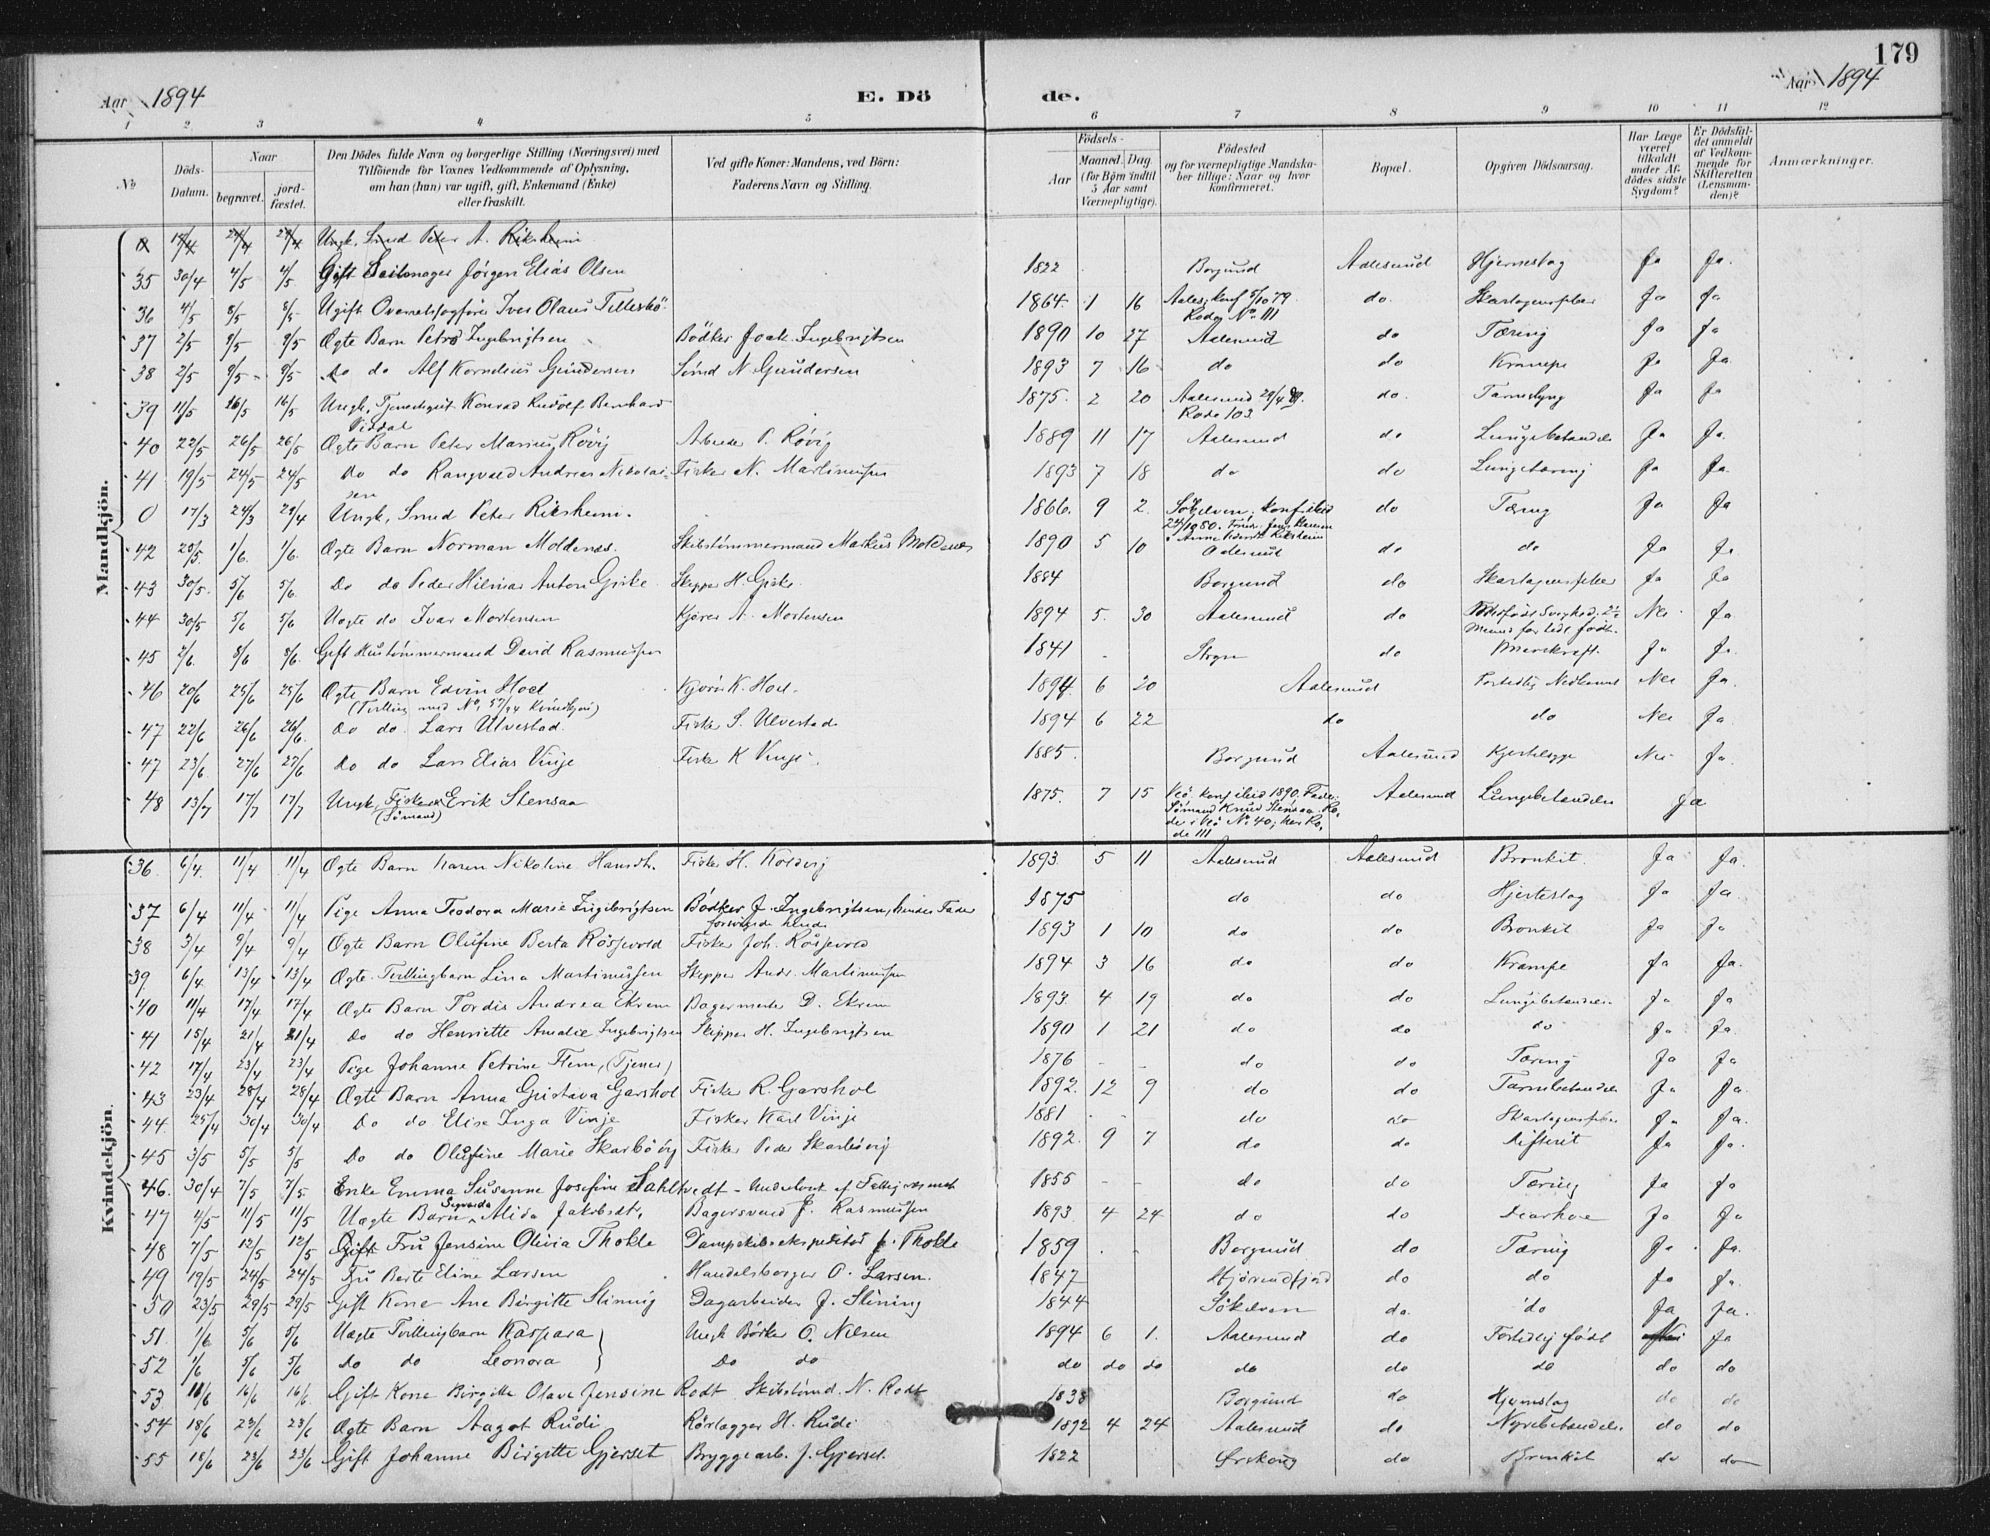 179
Aar 1894 E. Dö de. Aar 1894
1 2 3 4 5 6 7 8 9 10 11 12
No Döds-Datum. Naar begravet. jordfæstet. Den Dödes fulde Navn og borgerlige Stilling (Næringsvei) med Tilföiende for Voxnes Vedkommende af Oplysning, om han (hun) var ugift, gift, Enkemand (Enke) eller fraskilt. Ved gifte Koner: Mandens, ved Börn: Faderens Navn og Stilling. Födsels- Aar Maaned. Dag (for Börn indtil 5 Aar samt Værnepligtige). Födested og for værnepligtige Mandskaber tillige: Naar og hvor konfirmeret. Bopæl. Opgiven Dödsaarsag. Har Læge været tilkaldt under Afdödes sidste Sygdom? Er Dödsfaldet anmeldt af Vedkommende for Skifteretten (Lensmanden)? Anmærkninger.
Mandkjön.
17/4 24/4 24/4 Ungk. Smed Peter A. Riksheim
35 30/4 4/5 4/5 Gift Seilmager Jörgen Elias Olsen 1822 Borgund Aalesund Hjerneslag Ja Ja.
36 4/5 8/5 8/5 Ugift Iver Olaus 1864 1 16 Aales. konf 5/10 79. Rode No. 111 do. Skarlagensfeber Ja Ja
37 2/5 9/5 9/5 Ægte Barn Petra Ingebrigtsen Bödker Joak. Ingebrigtsen 1890 10 27 Aalesund do Tæring Ja Ja
38 2/5 9/5 9/5 Do do Alf Kornelius Gundersen Smed N Gundersen 1893 7 16 do do Krampe Ja Ja
39 11/5 16/5 16/5 Ungk. Tjenestegut Konrad Rudolf Bernhard Viddal 1875. 2 20 Aalesund Rode 103 do. Ja Ja
40 22/5 26/5 26/5 Ægte Barn Peter Marius Rövig Arbeider P. Rövig 1889 11 17 Aalesund do Lungebetændelse Ja Ja.
41 19/5 24/5 24/5 Do do Rangvald Andreas Nikolai-sen Fisker N. Martinussen 1893 7 18 do do Lungetæring Ja Ja.
0 17/3 24/3 24/4 Ungk. Smed Peter Riksheim. 1866. 9 2. Sökelven, Konf do Tæring Ja Ja
42 28/5 1/6. 1/6. Ægte Barn Norman Moldenæs. Skibstömmermand Markus Moldenæs 1890 5 10 Aalesund do do Ja Ja
43 30/5. 5/6 5/6. Do do Peder Hilmar Anton Giske Skipper H. Giske. 1884 Borgund do Skarlagensfeber Ja Ja
44 30/5 5/6 5/6 Uægte do Ivar Mortensen Kjörer A. Mortensen 1894 5. 30 Aalesund do Nei Ja
45 2/6. 8/6 8/6. Gift Hustömmermand David Rasmussen 1841 Stryn do Mavekræft. Ja Ja.
46 20/6 25/6 25/6 Ægte Barn Edvin Hoel Kjörer K. Hoel. 1894 6 20 Aalesund Fortidlig Nedkomst Nei Ja.
(Tvilling med No. 57/94 Kvindkjön)
47 22/6 26/6 26/6. Do do. Lars Ulvestad. Fisker S. Ulvestad. 1894 6 22 do do Nei Ja.
47 23/6. 27/6 27/6 Do do Lars Elias Vinje Fisker K Vinje. 1885. Borgund Aalesund Nei Ja.
48 13/7 17/7 17/7 Ungk. Fisker Erik Stensaa (Sömand) 1875. 7 15 Veö. Konf. 1890. Fader: Sömand Knud Stensaa. Rode i Veö No. 40; her Rode 111 Aalesund Lungebetændelse Ja
Kvindekjön.
36. 6/4. 11/4 11/4 Ægte Barn Karen Nikoline Fisker H. 1893. 5 11 Aalesund Aalesund Bronkit. Ja Ja.
37 6/4 11/4 11/4 Pige Anna Teodora Marie Ingebrigtsen Bödker J. Ingebrigtsen, hendes Fader 1875 do do Hjerteslag Ja Ja
38 3/4 9/4 9/4 Ægte Barn Olufine Berta Rösjevold Fisker Joh. Rösjevold 1893 1 10 do do Bronkit Ja Ja
39 6/4. 13/4 13/4 Ægte Tvillingbarn Lina Martinussen Skipper Andr. Martinussen 1894 3 16 do do Krampe Ja Ja.
40 11/4 17/4 17/4 Ægte Barn Tordis Andrea Ekrem Bagermester D. Ekrem 1893. 4 19 do do Lungebetændelse Ja Ja
41 15/4 21/4 21/4 Do do Henriette Amalie Ingebrigtsen Skipper H. Ingebrigtsen 1890 1 21 do do do Ja Ja
42 17/4 23/4 23/4 Pige Johanne Petrine Flem, (Tjener) 1876 - - do do Tæring Ja Ja
43 23/4 28/4 28/4 Ægte Barn Anna Gustava Garshol Fisker R. Garshol 1892. 12 9 do do Tarmbetændelse Ja Ja.
44. 25/4 30/4 30/4 Do do Elise Inga Vinje Fisker Karl Vinje 1881 - - do do Skarlagensfeber Ja Ja.
45 3/5 5/5 5/5 Do do Olufine Marie Skarbövig Fisker Peder Skarbövig 1892. 9 7 do do Difterit Ja Ja.
46. 30/4 7/5 7/5. Enke Emma Susanne Josefine Sahltvedt - Underholdt af Fattigvæsenet 1855 - - do do Tæring Ja Ja
47 4/5 11/5 11/5 Uægte Barn Alida Jakobsdt. Bagersvend J. Rasmussen 1893 4 24 do do Ja Ja
48 7/5 12/5 12/5 Gift Fru Jensine Olivia Tholle Dampskibsekspeditör J. Tholle 1859 Borgund do Tæring Ja. Ja.
49 19/5 24/5 24/5 Fru Berte Eline Larsen Handelsborger O. Larsen. 1847 Hjörendfjord do do Ja Ja.
50 23/5 29/5 29/5 Gift Kone Ane Birgitte Slinnig Dagarbeider J. Slining 1844 Sökelven do do Ja Ja.
51. 1/6 5/6 5/6 Uægte Tvillingbarn Kaspara Ungk Bödker O. Nilsen 1894 6 1. Aalesund do Fortidlig födt Ja
52 1/6 5/6 5/6 Do do Leonora Do do do do do do do do do do
53 11/6 16/6 16/6 Gift Kone Birgitte Olave Jensine Rodt Skibstömd. N. Rodt 1838 Borgund do Hjerneslag do do
54 18/6 23/6 23/6 Ægte Barn Aagot Rudi Rörlægger H. Rudi 1892 4 24 Aalesund do Nyrebetændelse do do
55 18/6 23/6 23/6 Gift Johanne Birgitte Gjerset Bryggearb. J. Gjerset. 1822 Ørskoug do Bronkit do do